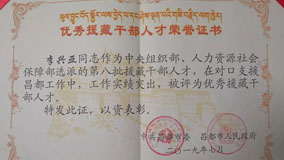 优秀援藏干部人才荣誉证书
李兴亚同志作为中央组织部、人力资源社会
保障部选派的第八批援藏干部人才，在对口支援
昌都工作中，工作实绩突出，被评为优秀援藏
干部人才。
特发此证，以资表彰。
中共昌都市委 昌都市人民政府
二〇一九年七月